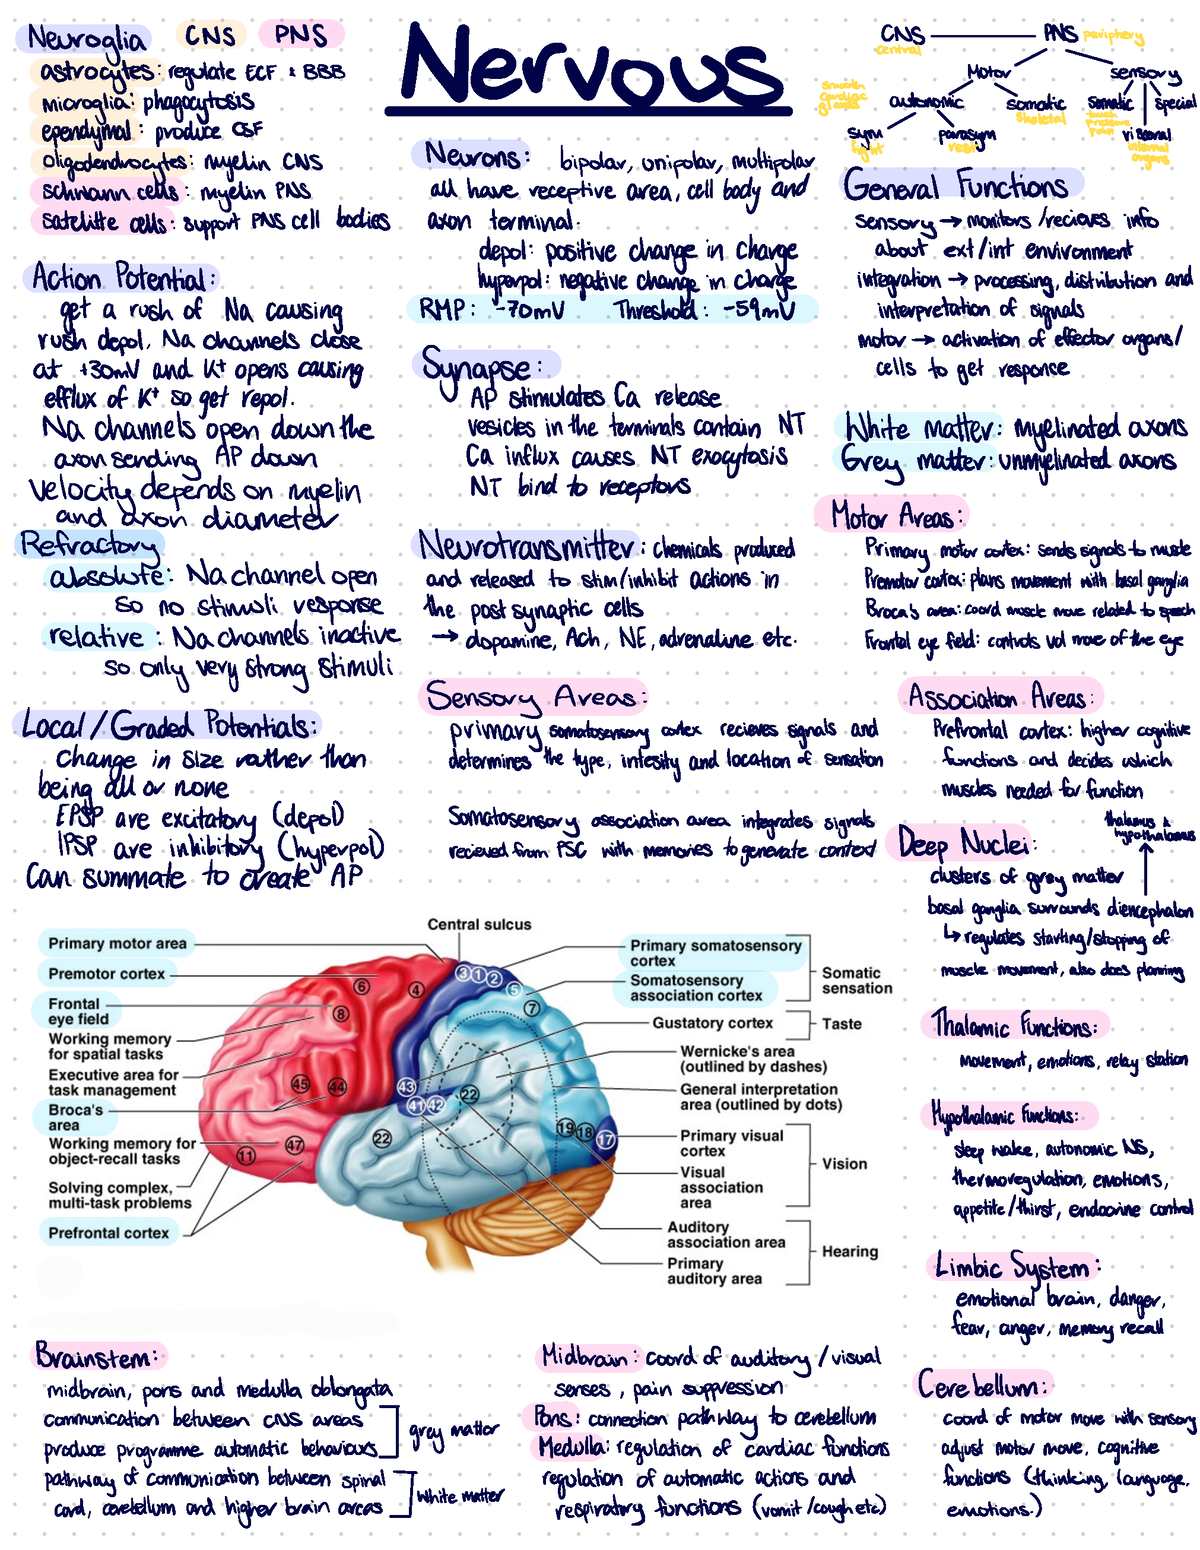 Nervous
Neuroglia CNS PNS
astrocytes: regulate ECF & BBB
microglia: phagocytosis
ependymal: produce CSF
oligodendrocytes: myelin CNS
schwann cells: myelin PNS
satellite cells: support PNS cell bodies
Action Potential:
get a rush of Na causing
rush depol. Na channels close
at +30mV and K+ opens causing
efflux of K+ so get repol.
Na channels open down the
axon sending AP down
Velocity depends on myelin
and axon diameter
Refractory
absolute: Na channel open
so no stimuli response
relative: Na channels inactive
so only very strong stimuli
Local/Graded Potentials:
change in size rather than
being all or none
EPSP are excitatory (depol)
IPSP are inhibitory (hyperpol)
Can summate to create AP
Neurons: bipolar, unipolar, multipolar
all have receptive area, cell body and
axon terminal.
depol: positive change in charge
hyperpol: negative change in charge
RMP: -70mV Threshold: -59mV
Synapse:
AP stimulates Ca release
vesicles in the terminals contain NT
Ca influx causes NT exocytosis
NT bind to receptors
Neurotransmitter: chemicals produced
and released to stim/inhibit actions in
the post synaptic cells
→ dopamine, Ach, NE, adrenaline etc.
Sensory Areas:
primary somatosensory cortex recieves signals and
determines the type, intesity and location of sensation
Somatosensory association area integrates signals
recieved from PSC with memories to generate context
CNS PNS periphery
central
Motor sensory
smooth
cardiac
glands
autonomic somatic somatic special
skeletal touch
pressure
pain
sym parasym visceral
fight rest internal
organs
General Functions
sensory → monitors/recieves info
about ext/int environment
integration → processing, distribution and
interpretation of signals
motor → activation of effector organs/
cells to get response
White matter: myelinated axons
Grey matter: unmyelinated axons
Motor Areas:
Primary motor cortex: sends signals to muscle
Premotor cortex: plans movement with basal ganglia
Broca's area: coord muscle move related to speech
Frontal eye field: controls vol move of the eye
Association Areas:
Prefrontal cortex: higher cognitive
functions and decides which
muscles needed for function
thalamus &
hypothalamus
Deep Nuclei:
clusters of grey matter
basal ganglia surrounds diencephalon
↳ regulates starting/stopping of
muscle movement, also does planning
Thalamic Functions:
movement, emotions, relay station
Hypothalamic Functions:
sleep wake, autonomic NS,
thermoregulation, emotions,
appetite/thirst, endocrine control
Limbic System:
emotional brain, danger,
fear, anger, memory recall
Cerebellum:
coord of motor move with sensory
adjust motor move, cognitive
functions (thinking, language,
emotions.)
Central sulcus
Primary motor area
Premotor cortex
Frontal
eye field
Working memory
for spatial tasks
Executive area for
task management
Broca's
area
Working memory for
object-recall tasks
Solving complex,
multi-task problems
Prefrontal cortex
6
4
8
45
44
47
11
3 1 2
5
7
43
41 42
22
22
19 18 17
Primary somatosensory
cortex
Somatosensory
association cortex
Somatic
sensation
Gustatory cortex
Taste
Wernicke's area
(outlined by dashes)
General interpretation
area (outlined by dots)
Primary visual
cortex
Visual
association
area
Vision
Auditory
association area
Primary
auditory area
Hearing
Brainstem:
midbrain, pons and medulla oblongata
communication between CNS areas
produce programme automatic behaviours
grey matter
pathway of communication between spinal
cord, cerebellum and higher brain areas
white matter
Midbrain: coord of auditory/visual
senses, pain suppression
Pons: connection pathway to cerebellum
Medulla: regulation of cardiac functions
regulation of automatic actions and
respiratory functions (vomit/cough etc)